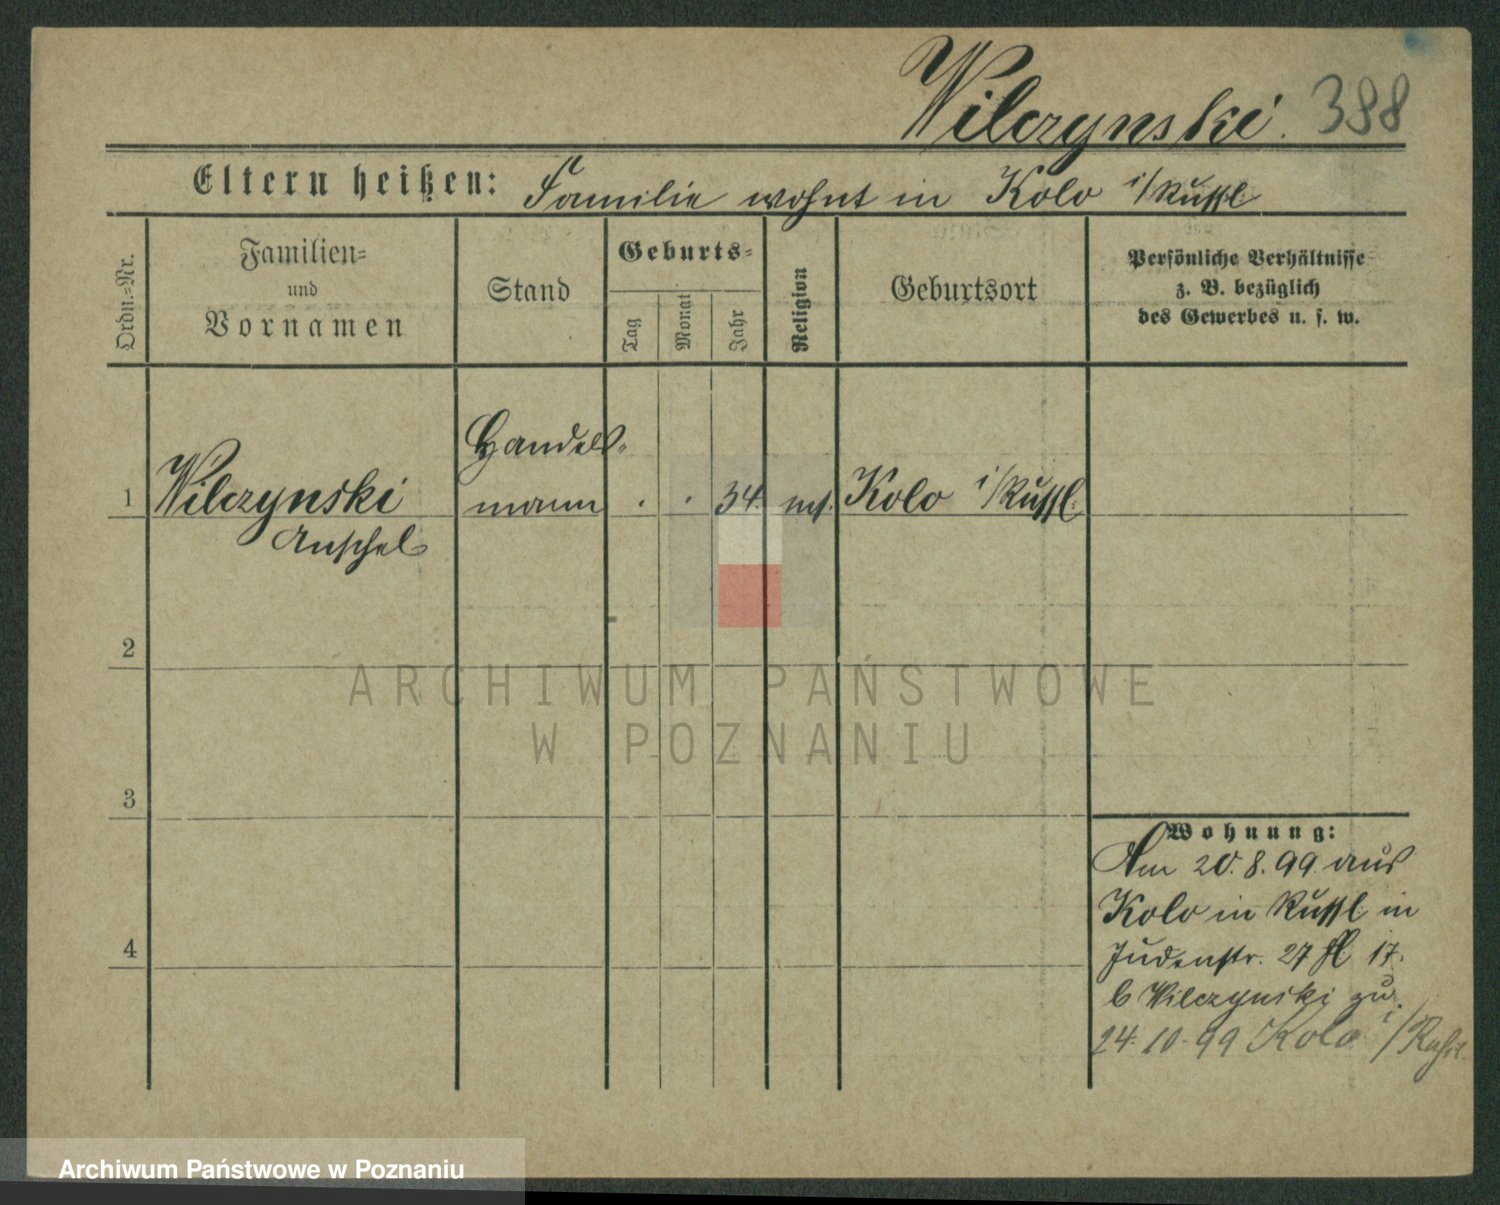 Wilczynski. 388
Eltern heißen: Familie wohnt in Kolo i/Russl.
Ordn.-Nr.
Familien-
und
Vornamen
Stand
Geburts-
Tag
Monat
Jahr
Religion
Geburtsort
Persönliche Verhältnisse
z. B. bezüglich
des Gewerbes u. s. w.
Handels-
1 Wilczynski mann . . 34. mos. Kolo i/Russl.
Anschel
2
ARCHIWUM PAŃSTWOWE
W POZNANIU
3
Wohnung:
Am 20.8.99. aus
Kolo in Russl. in
4
Judenstr. 27 17.
b Wilczynski zu.
24.10.99 Kolo i/Russl.
Archiwum Państwowe w Poznaniu